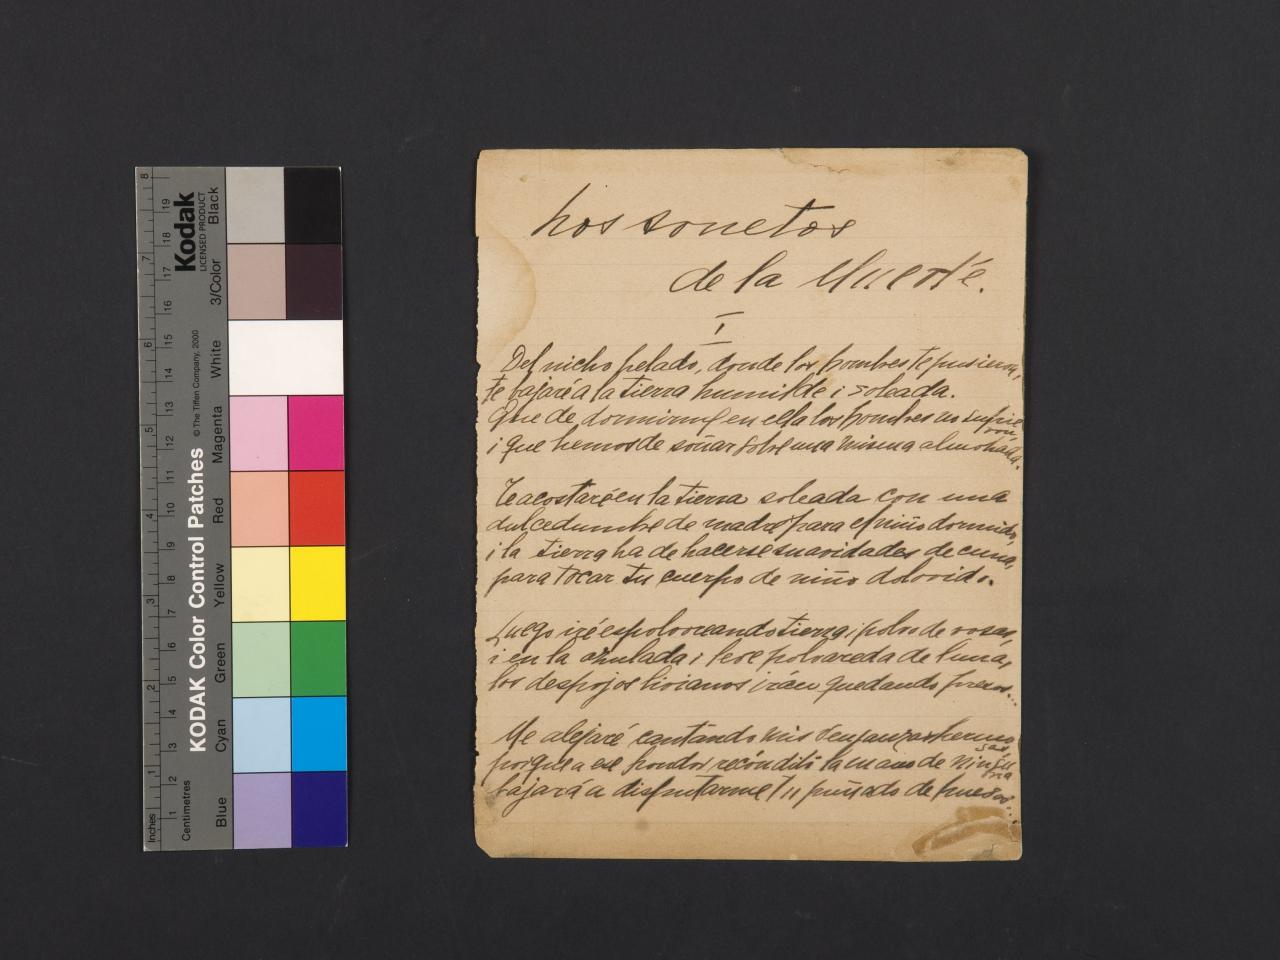 Los sonetos
de la Muerte.
I
Del nicho helado, donde los hombres te pusieron,
te bajaré a la tierra humilde i soleada.
Que he de dormirme en ella los hombres no supieron
i que hemos de soñar sobre una misma almohada.
Te acostaré en la tierra soleada con una
dulcedumbre de madre para el niño dormido,
i la tierra ha de hacerse suavidades de cuna,
para tocar tu cuerpo de niño dolorido.
Luego iré espolvoreando tierra i polvo de rosas,
i en la azulada i leve polvareda de luna,
los despojos livianos irán quedando presos...
Me alejaré cantando mis venganzas hermosas
porque a ese hondor recóndito la mano de ninguna
bajará a disputarme tu puñado de huesos...
KODAK Color Control Patches © The Tiffen Company, 2000
Kodak
LICENSED PRODUCT
Inches 1 2 3 4 5 6 7 8
Centimetres 1 2 3 4 5 6 7 8 9 10 11 12 13 14 15 16 17 18 19
Blue Cyan Green Yellow Red Magenta White 3/Color Black